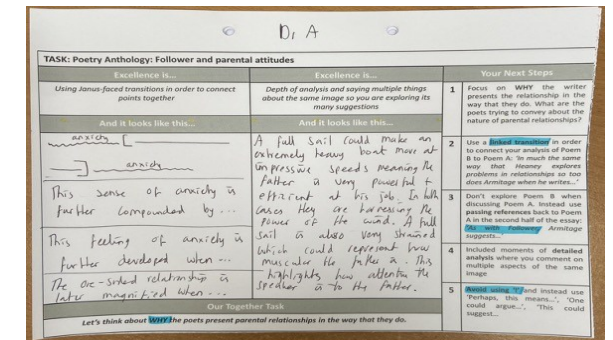 D, A
TASK: Poetry Anthology: Follower and parental attitudes
Excellence is...
Using Janus-faced transitions in order to connect
points together
And it looks like this...
anxiety
anxiety
This sense of anxiety is
further compounded by ...
This feeling of anxiety is
further developed when ...
The one-sided relationship is
later magnified when ...
Excellence is...
Depth of analysis and saying multiple things
about the same image so you are exploring its
many suggestions
And it looks like this...
A full sail could make an
extremely heavy boat move at
impressive speeds meaning the
father is very powerful +
efficient at his job. In both
cases they are harnessing the
power of the wind. A full
sail is also very strained
which could represent how
muscular the father is. This
highlights how attentive the
speaker is to the father.
Your Next Steps
1 Focus on WHY the writer
presents the relationship in the
way that they do. What are the
poets trying to convey about the
nature of parental relationships?
2 Use a linked transition in order
to connect your analysis of Poem
B to Poem A: 'In much the same
way that Heaney explores
problems in relationships so too
does Armitage when he writes...'
3 Don't explore Poem B when
discussing Poem A. Instead use
passing references back to Poem
A in the second half of the essay:
'As with Follower, Armitage
suggests...'
4 Included moments of detailed
analysis where you comment on
multiple aspects of the same
image
5 Avoid using 'I' and instead use
'Perhaps, this means...', 'One
could argue...', 'This could
suggest...
Our Together Task
Let's think about WHY the poets present parental relationships in the way that they do.